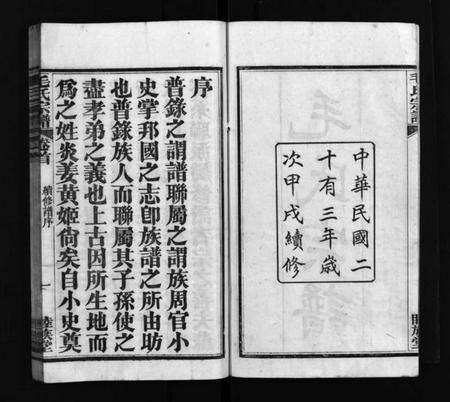 毛氏宗譜
中華民國二
十有三年歲
次甲戌續修
序
普錄之謂譜聯屬之謂族周官小
史掌邦國之志卽族譜之所由昉
也普錄族人而聯屬其子孫使之
盡孝弟之義也上古因所生地而
爲之姓炎姜黃姬尙矣自小史奠
毛氏宗譜
卷首
續修譜序
一